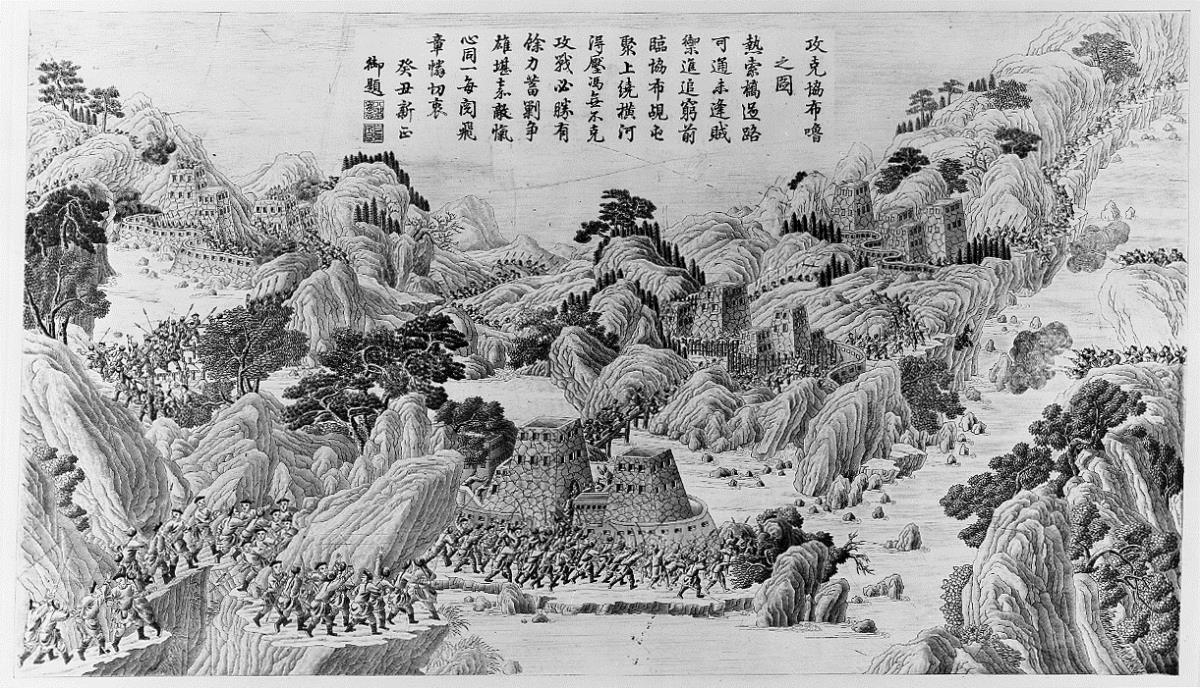 攻克協布嚕
之圖
熱索橋過路
可通未逢賊
禦進追窮前
臨協布覘屯
聚上繞橫河
得壓馮無不克
攻戰必勝有
餘力奮勦爭
雄堪嘉敵愾
心同一每閱飛
章憐切衷
癸丑新正
御題